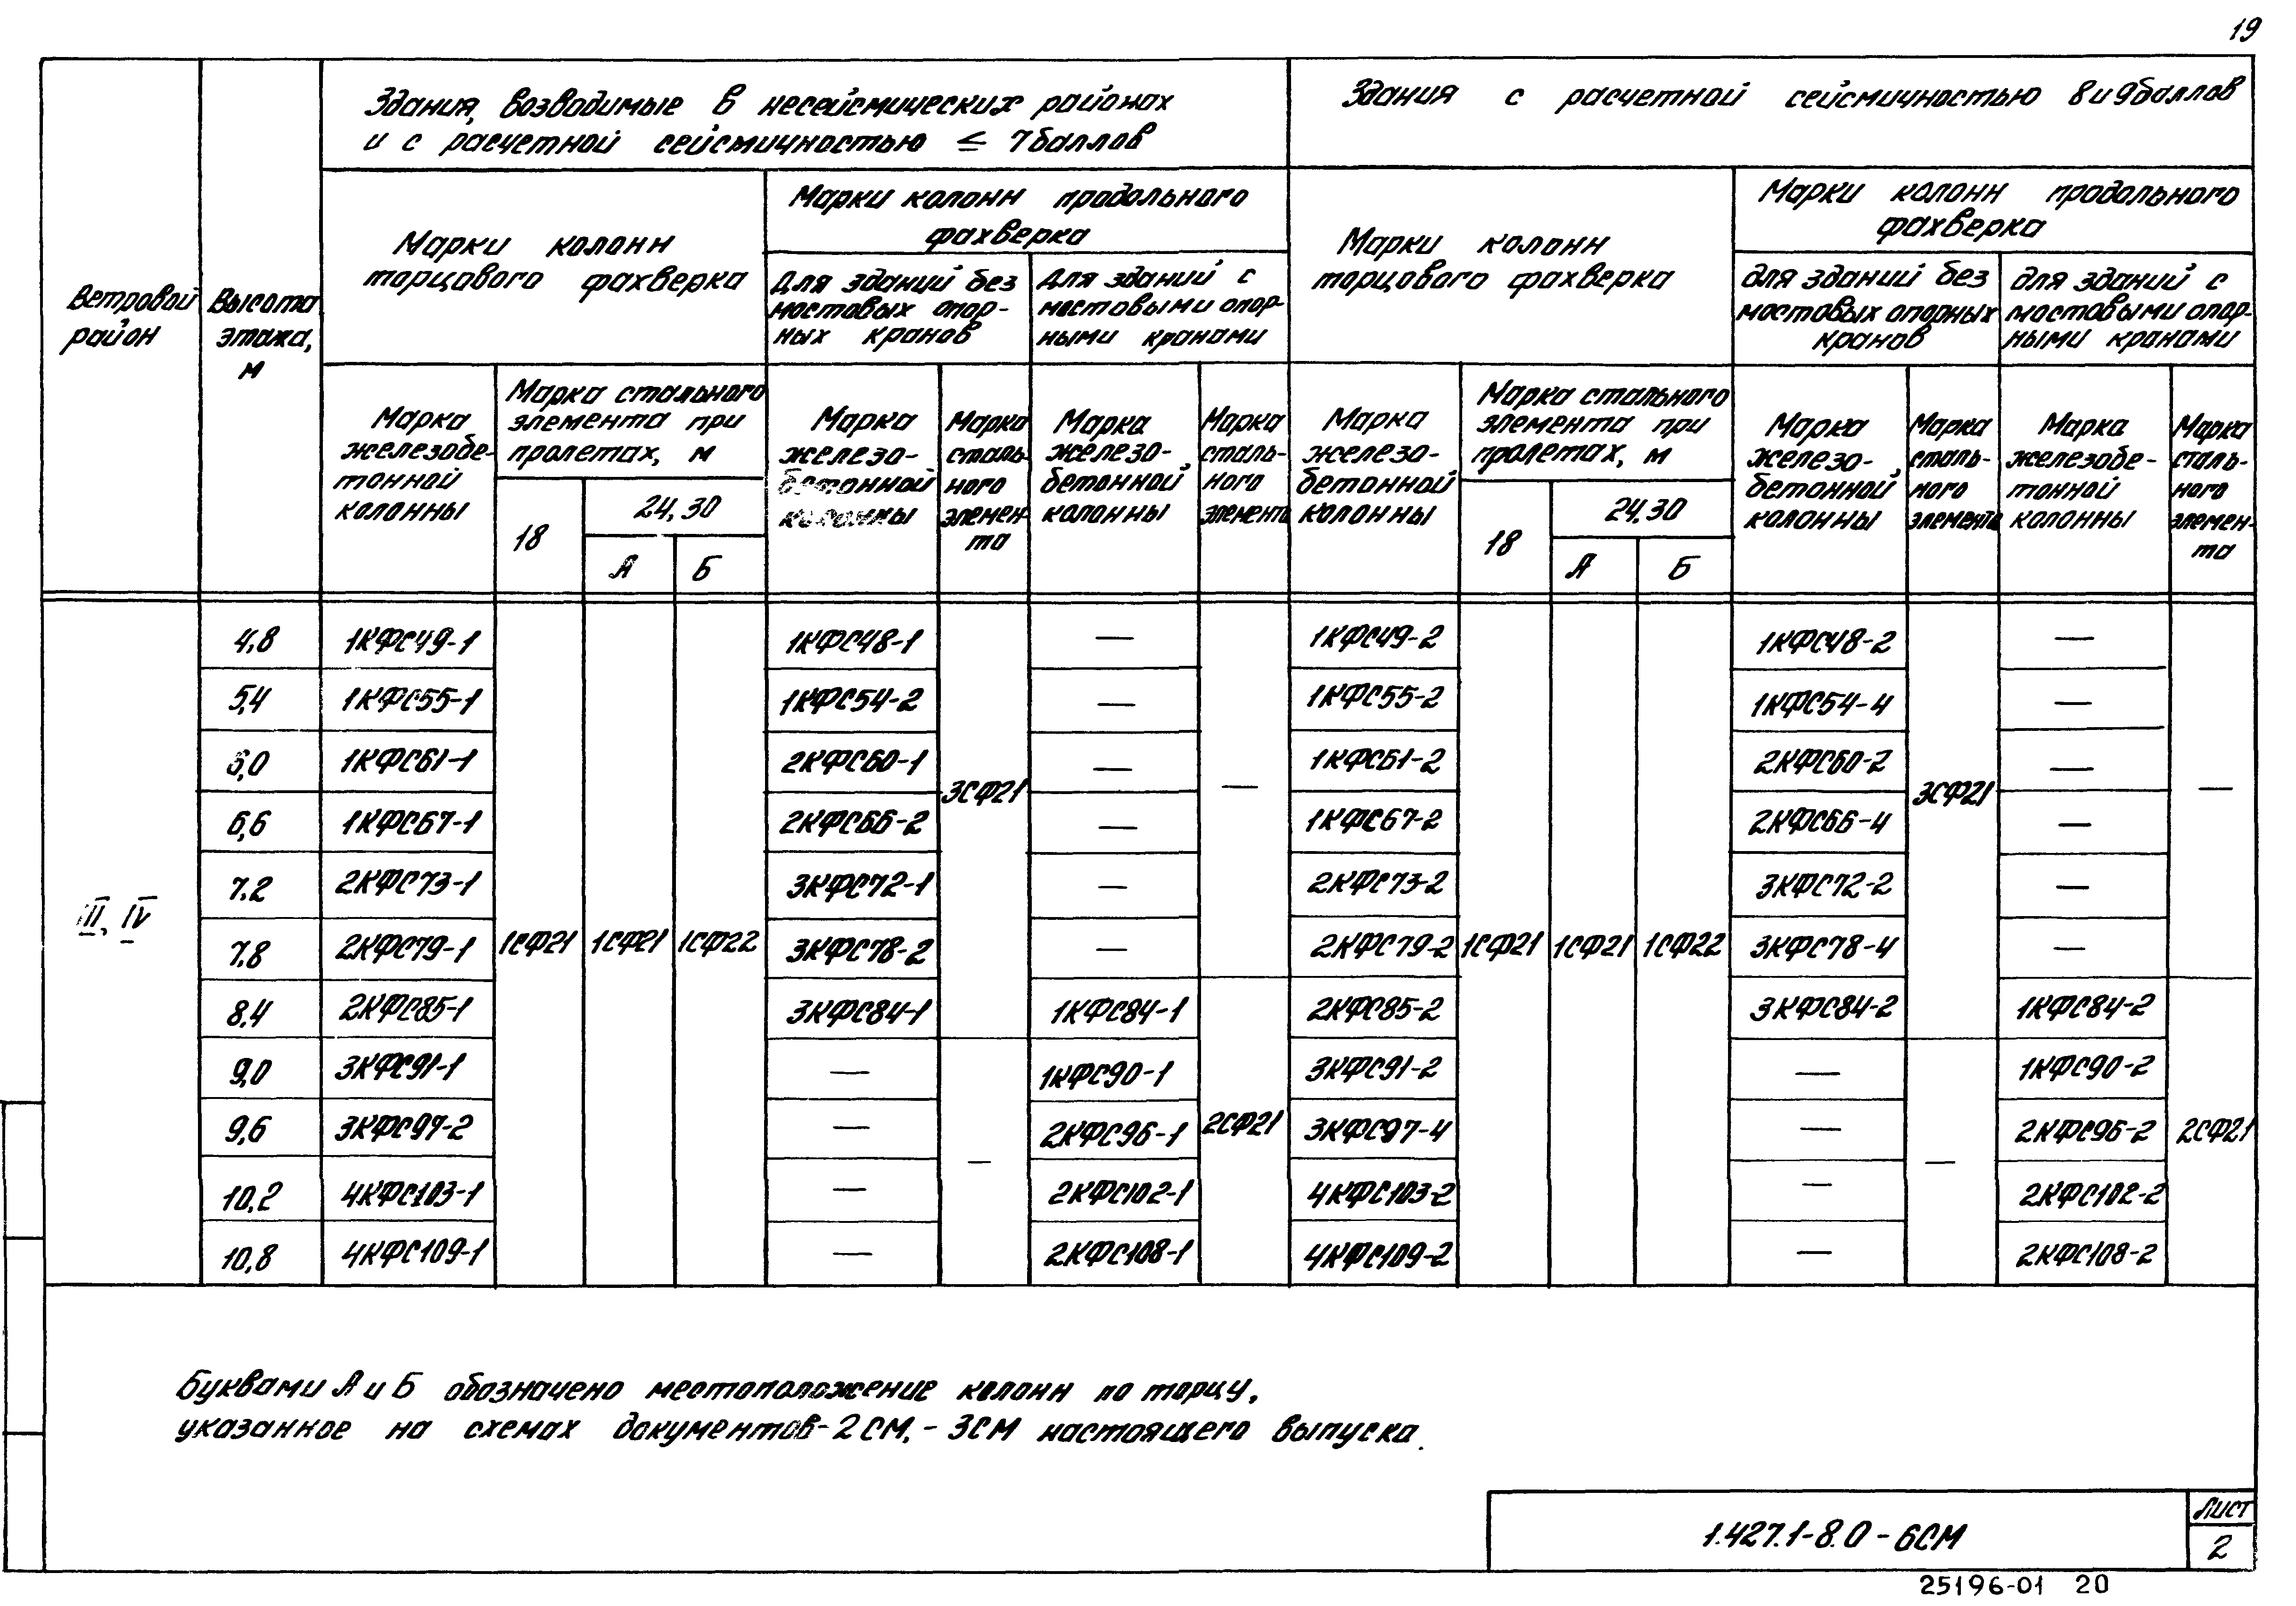 19
Здания, возводимые в несейсмических районах
и с расчетной сейсмичностью ≤ 7 баллов
Здания с расчетной сейсмичностью 8 и 9 баллов
Ветровой
район
Высота
этажа,
м
Марки колонн
торцового фахверка
Марки колонн продольного
фахверка
Для зданий без
мостовых опор-
ных кранов
Для зданий с
мостовыми опор-
ными кранами
Марки колонн
торцового фахверка
Марки колонн продольного
фахверка
для зданий без
мостовых опорных
кранов
для зданий с
мостовыми опор-
ными кранами
Марка
железобе-
тонной
колонны
Марка стального
элемента при
пролетах, м
18
24, 30
А
Б
Марка
железо-
бетонной
колонны
Марка
сталь-
ного
элемен-
та
Марка
железо-
бетонной
колонны
Марка
сталь-
ного
элемента
Марка
железо-
бетонной
колонны
Марка стального
элемента при
пролетах, м
18
24, 30
А
Б
Марка
железо-
бетонной
колонны
Марка
сталь-
ного
элемента
Марка
железобе-
тонной
колонны
Марка
сталь-
ного
элемен-
та
III, IV
4,8 1КФС49-1 1КФС48-1 — 1КФС49-2 1КФС48-2 —
5,4 1КФС55-1 1КФС54-2 — 1КФС55-2 1КФС54-4 —
6,0 1КФС61-1 2КФС60-1 — 1КФС61-2 2КФС60-2 —
3СФ21 — 3СФ21 —
6,6 1КФС67-1 2КФС66-2 — 1КФС67-2 2КФС66-4 —
7,2 2КФС73-1 3КФС72-1 — 2КФС73-2 3КФС72-2 —
7,8 2КФС79-1 1СФ21 1СФ21 1СФ22 3КФС78-2 — 2КФС79-2 1СФ21 1СФ21 1СФ22 3КФС78-4 —
8,4 2КФС85-1 3КФС84-1 1КФС84-1 2КФС85-2 3КФС84-2 1КФС84-2
9,0 3КФС91-1 — 1КФС90-1 3КФС91-2 — 1КФС90-2
9,6 3КФС97-2 — 2КФС96-1 2СФ21 3КФС97-4 — 2КФС96-2 2СФ21
— —
10,2 4КФС103-1 — 2КФС102-1 4КФС103-2 — 2КФС102-2
10,8 4КФС109-1 — 2КФС108-1 4КФС109-2 — 2КФС108-2
Буквами А и Б обозначено местоположение колонн по торцу,
указанное на схемах документов-2СМ,-3СМ настоящего выпуска.
1.427.1-8.0-6СМ
Лист
2
25196-01 20